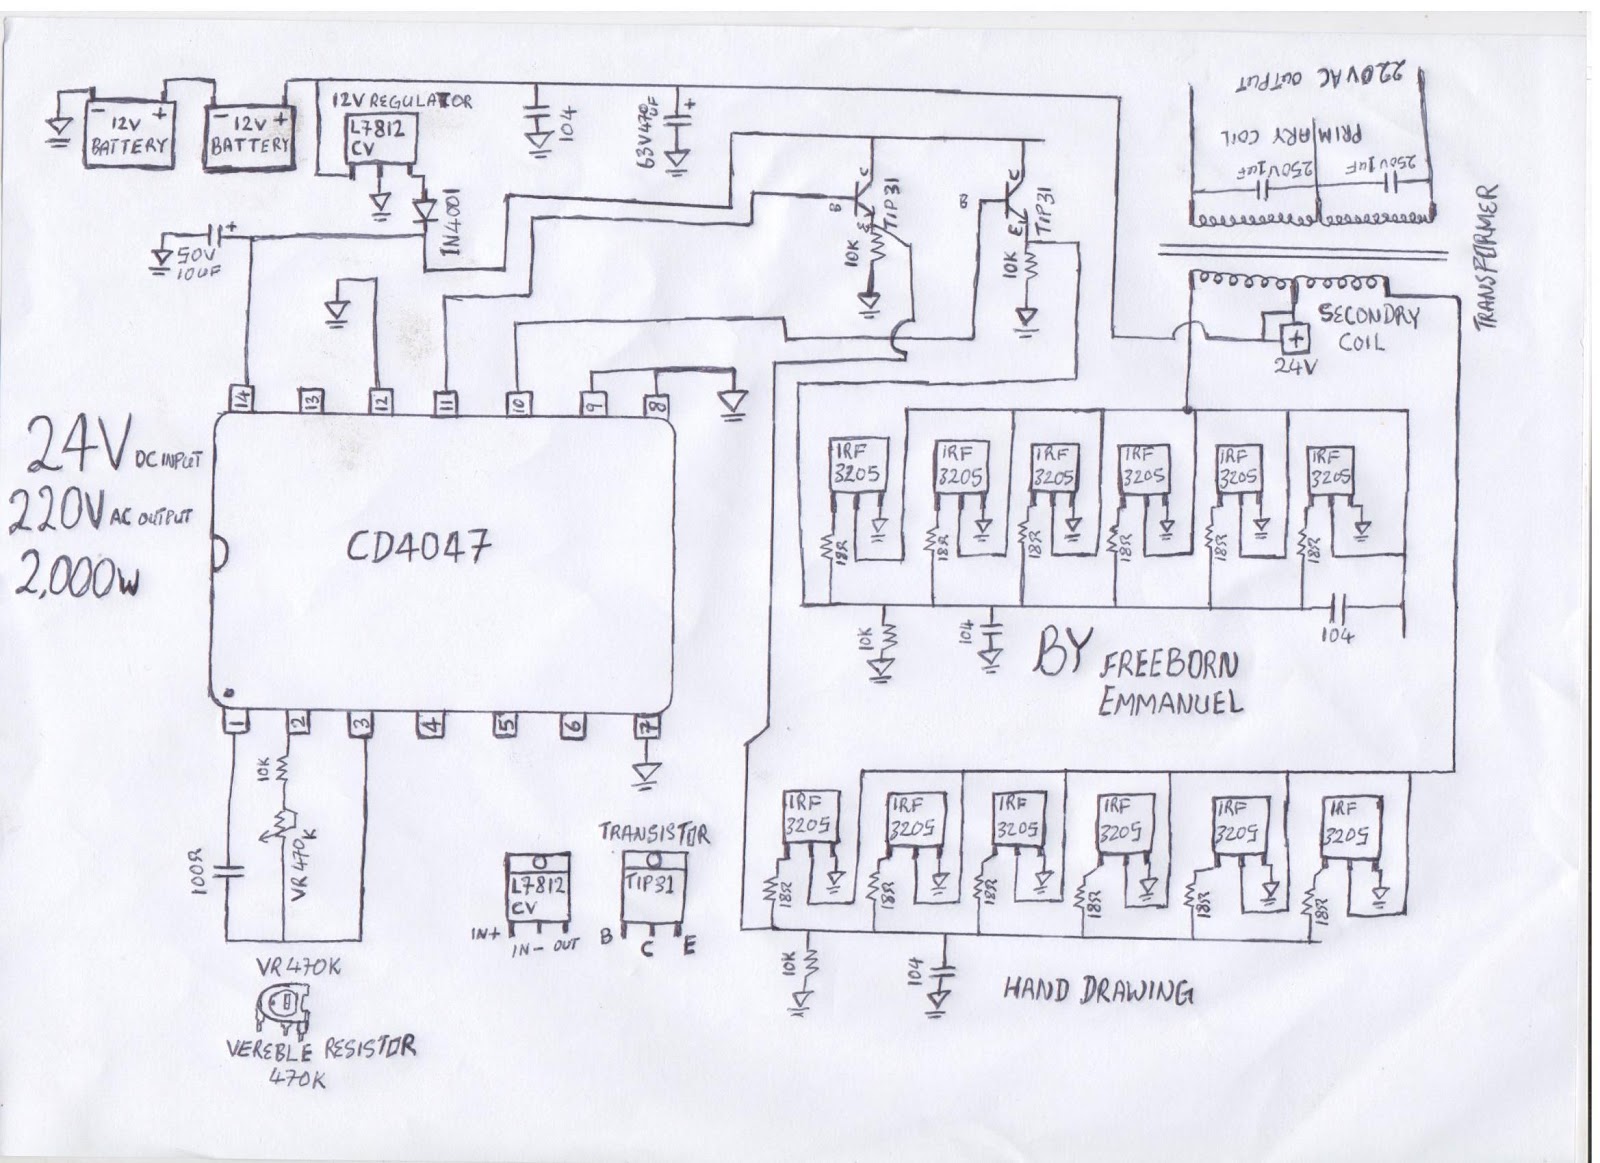 12V
BATTERY
12V
BATTERY
12V REGULATOR
L7812
CV
104
63V470
UF
IN4001
50V
10UF
B
C
E
TIP31
10K
B
C
E
TIP31
10K
220VAC OUTPUT
PRIMARY COIL
250V1UF
250V1UF
TRANSFORMER
SECONDRY
COIL
24V
14
13
12
11
10
9
8
24V DC INPUT
220V AC OUTPUT
2,000W
CD4047
1
2
3
4
5
6
7
IRF
3205
IRF
3205
IRF
3205
IRF
3205
IRF
3205
IRF
3205
18Ω
18Ω
18Ω
18Ω
18Ω
18Ω
10K
104
104
BY FREEBORN
EMMANUEL
10K
VR470K
100Ω
VR470K
VEREBLE RESISTOR
470K
L7812
CV
IN+
IN-
OUT
TRANSISTOR
TIP31
B
C
E
IRF
3205
IRF
3205
IRF
3205
IRF
3205
IRF
3205
IRF
3205
18Ω
18Ω
18Ω
18Ω
18Ω
18Ω
10K
104
HAND DRAWING